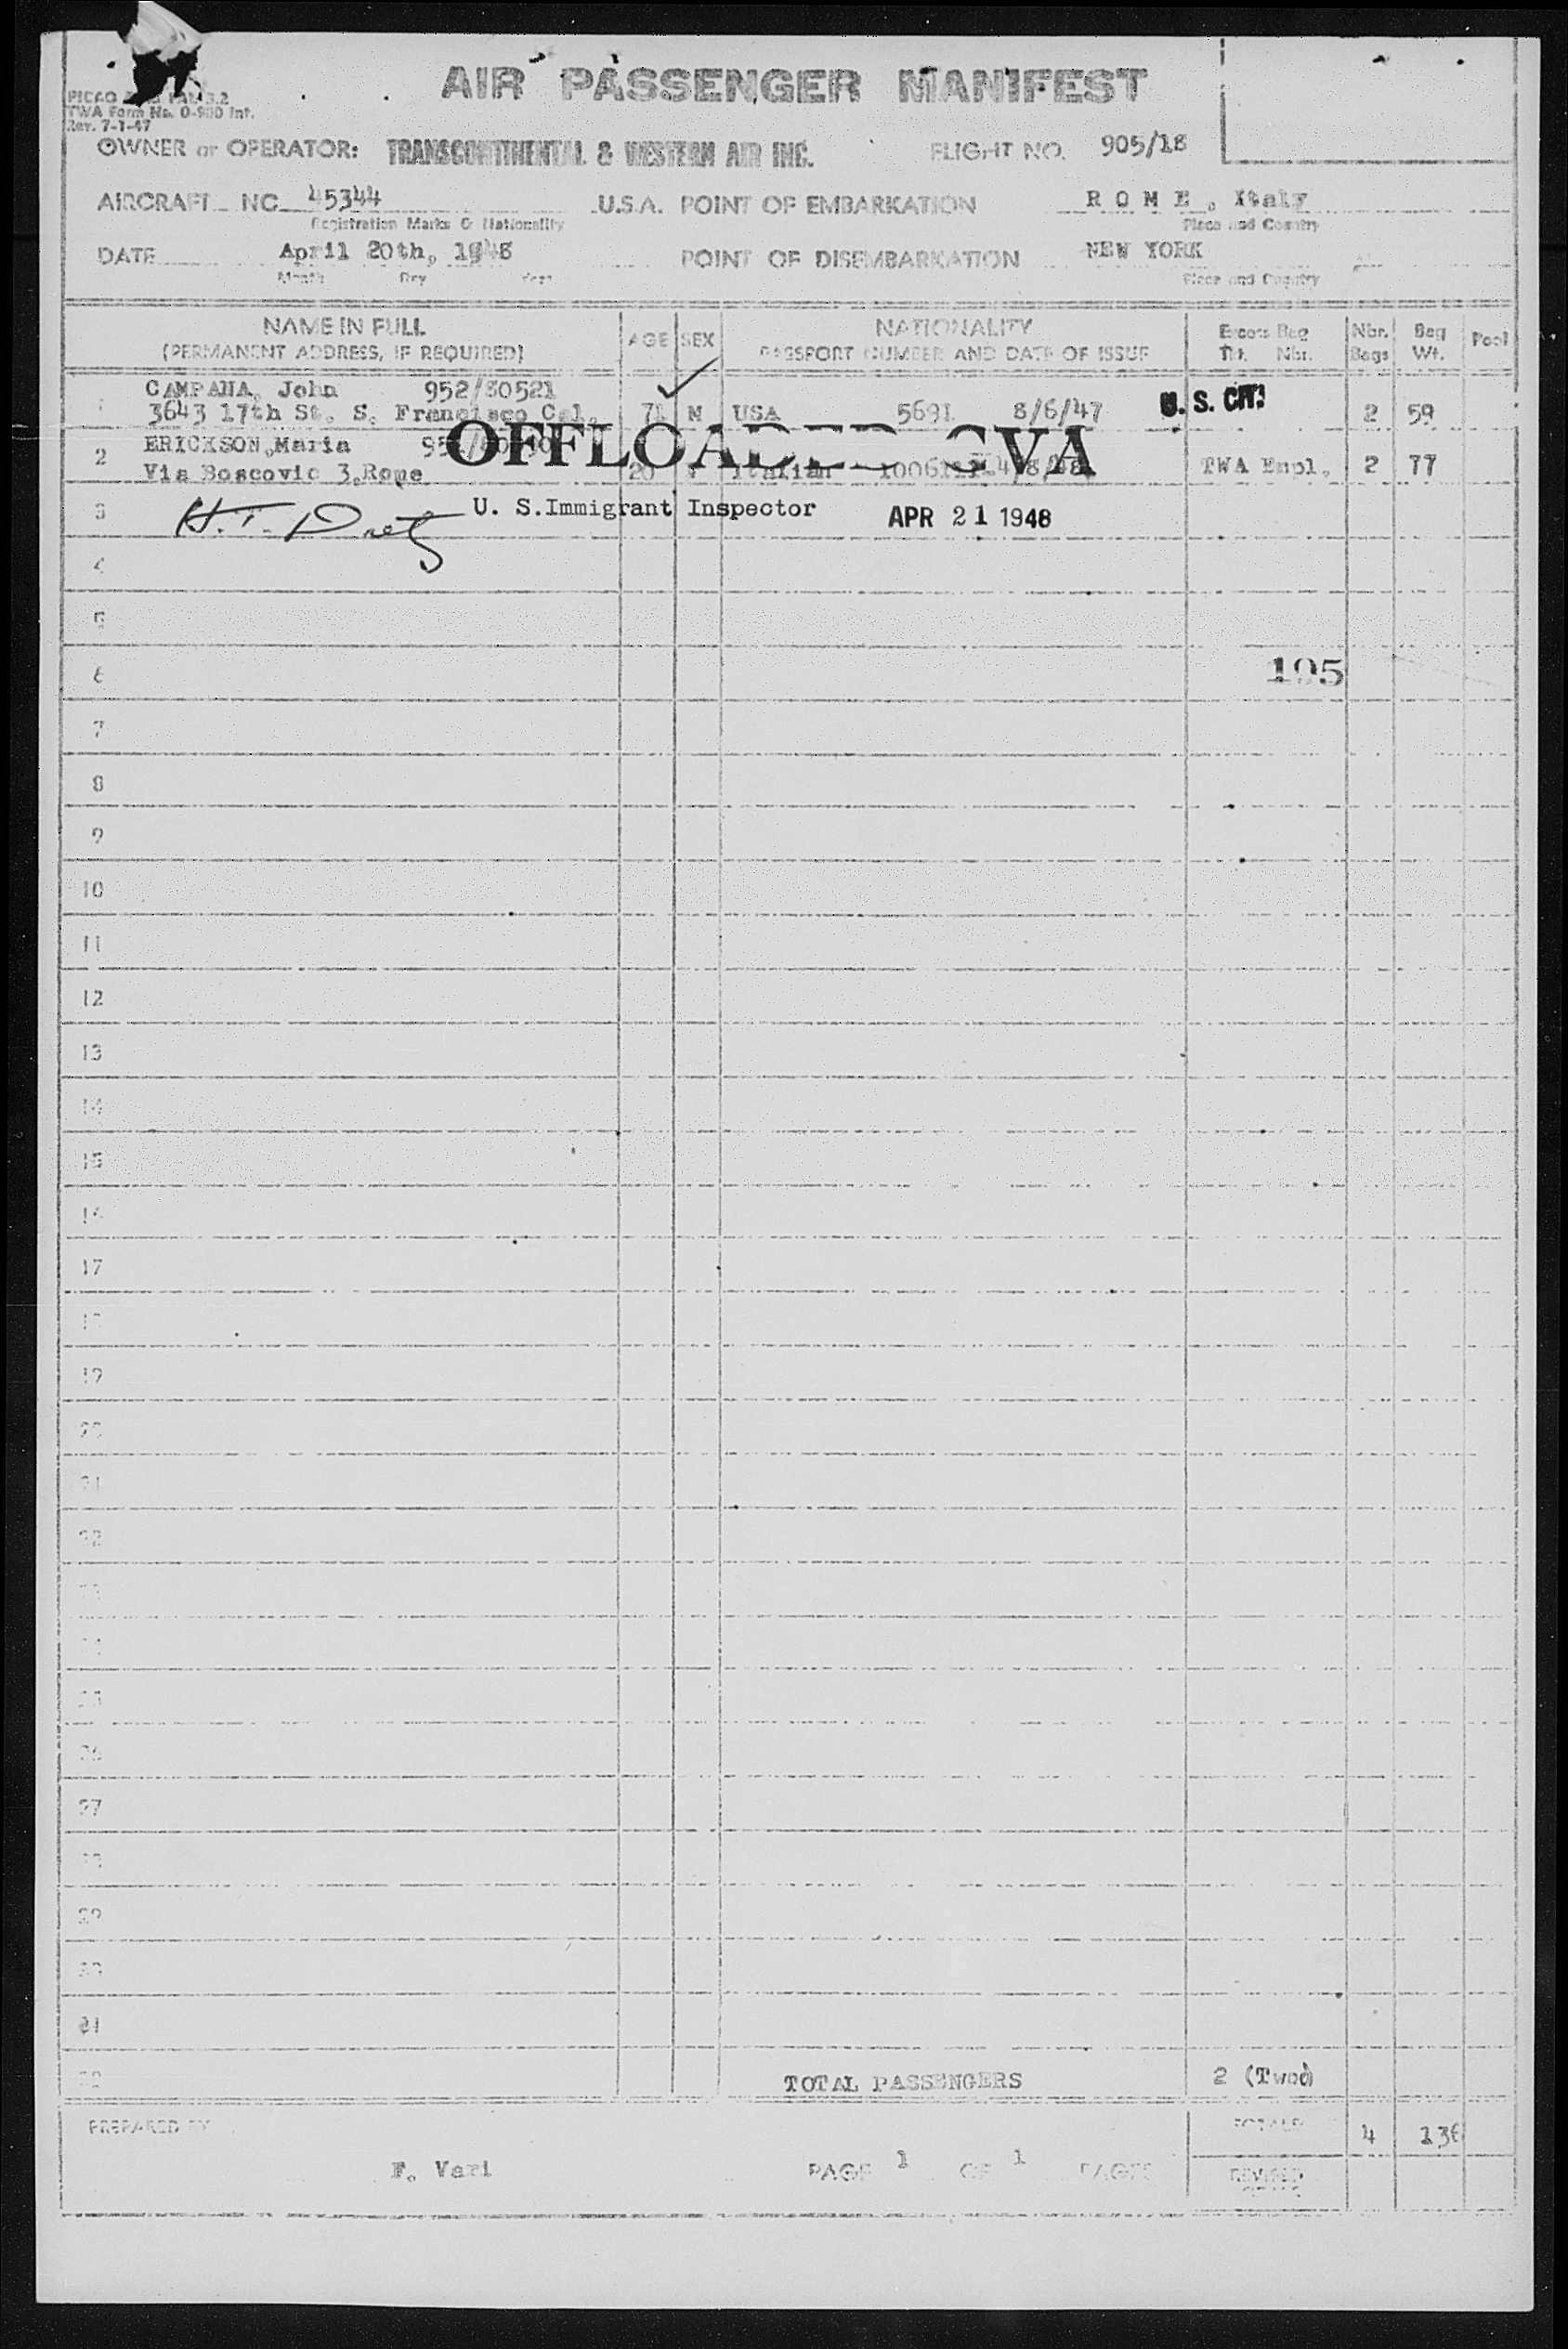 AIR PASSENGER MANIFEST
TWA Form No. 0-900 Int.
Rev. 7-1-47
OWNER or OPERATOR: TRANSCONTINENTAL & WESTERN AIR INC. FLIGHT NO. 905/18
AIRCRAFT NC 45344 U.S.A. POINT OF EMBARKATION R O M E, Italy
Registration Marks & Nationality Place and Country
DATE April 20th, 1948 POINT OF DISEMBARKATION NEW YORK
Month Day Year Place and Country
NAME IN FULL AGE SEX NATIONALITY Excess Bag Nbr. Bag Pool
(PERMANENT ADDRESS, IF REQUIRED) PASSPORT NUMBER AND DATE OF ISSUE Tkt. Nbr. Bags Wt.
CAMPANA, John 952/80521
1 3643 17th St. S. Francisco Cal. 71 M USA 5691 8/6/47 U. S. CIT. 2 59
ERICKSON, Maria
OFFLOADED GVA
2 Via Boscovic 3, Rome Italian TWA Empl. 2 77
3 U. S. Immigrant Inspector APR 21 1948
4
5
6 195
7
8
9
10
11
12
13
14
15
16
17
18
19
20
21
22
23
24
25
26
27
28
29
30
31
32 TOTAL PASSENGERS 2 (Two)
PREPARED BY TOTALS 4 136
F. Vari PAGE 1 OF 1 PAGES REVISED